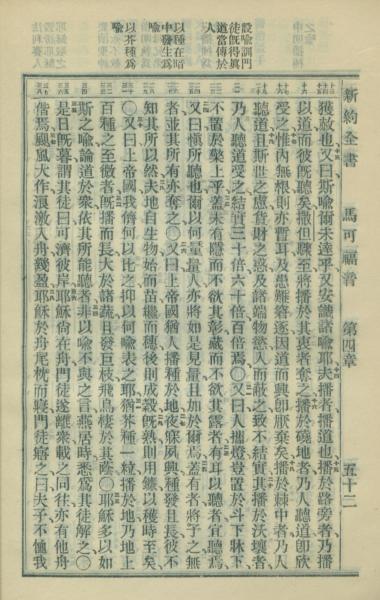 新約全書 馬可福音 第四章
設喩訓門
徒旣得眞
道當傳於
人
以種在暗
中發生爲
喩
以芥種爲
喩
獲赦也又曰斯喩爾未達乎又安識諸喩耶夫播者播道也播於路旁者乃播
以道而彼旣聽矣撒但驟至將播於其衷者奪之播於磽地者乃人聽道卽欣
受之惟內無根則亦暫耳及患難窘逐因道而興卽厭棄矣播於棘中者乃人
聽道且斯世之慮貨財之惑及諸端物慾入而蔽之致不結實其播於沃壤者
乃人聽道受之結實三十倍六十倍百倍焉〇又曰人攜燈豈置於斗下牀下
不置於檠上乎蓋未有隱而不欲其彰藏而不欲其露者有耳以聽者宜聽焉
又曰愼所聽也爾以何量量人亦將如是見量且加於爾焉蓋有者將予之無
者並其所有亦奪之〇又曰上帝國猶人播種於地夜寐夙興種發且長彼不
知其所以然夫地自生物始而苗繼而穗後則成穀旣熟則用鐮以穫時至矣
〇又曰上帝國我儕何以比之抑以何喩表之耶猶芥種一粒播於地乃地上
百種之至微者旣播而長大於諸蔬且發巨枝飛鳥棲於其蔭〇耶穌多以如
斯之喩論道於衆依其所能聽者非以喩不與之言燕居時悉爲其徒解之〇
是日旣暮謂其徒曰可濟彼岸耶穌尙在舟門徒遂離衆載之同往亦有他舟
偕焉颶風大作浪激入舟幾盈耶穌於舟尾枕而寢門徒寤之曰夫子不恤我